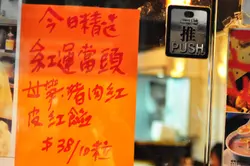 今日精選
紅運當頭
甘筍豬肉紅
皮紅餡
$38/10粒
推
PUSH